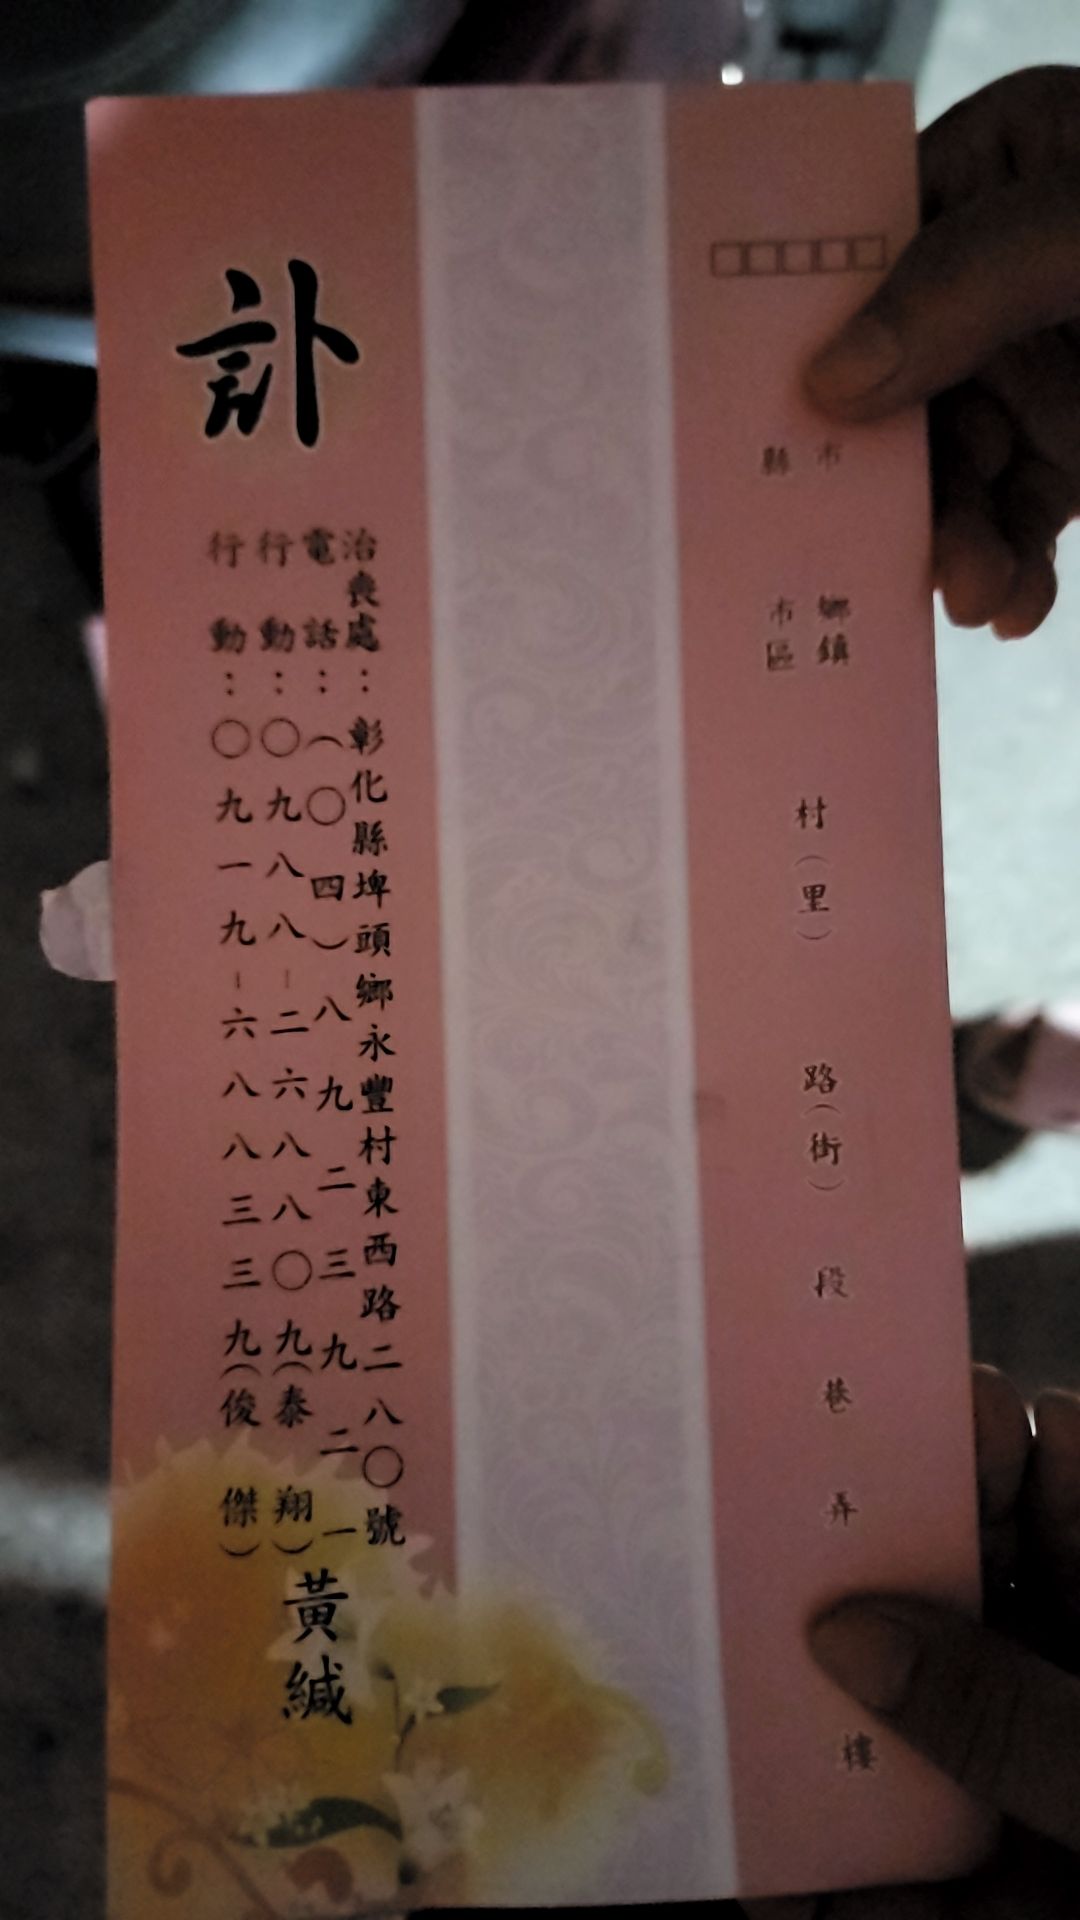 縣市
鄉鎮
市區
村（里）
路（街）
段
巷
弄
樓
訃
治喪處：彰化縣埤頭鄉永豐村東西路二八〇號
電話：（〇四）八九二三九二一
行動：〇九八八－二六八八〇九（泰翔）
行動：〇九一九－六八八三三九（俊傑）
黃緘